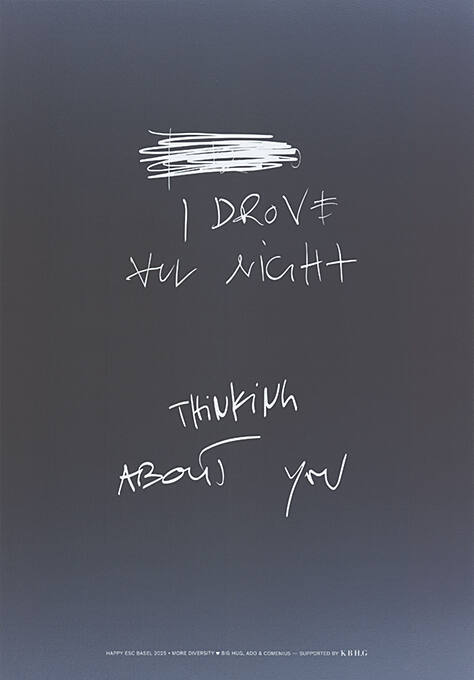 I DROVE
ALL NIGHT
THiNKiNG
ABOUT YOU
HAPPY ESC BASEL 2025 • MORE DIVERSITY ♥ BIG HUG, ADO & COMENIUS — SUPPORTED BY KBH.G